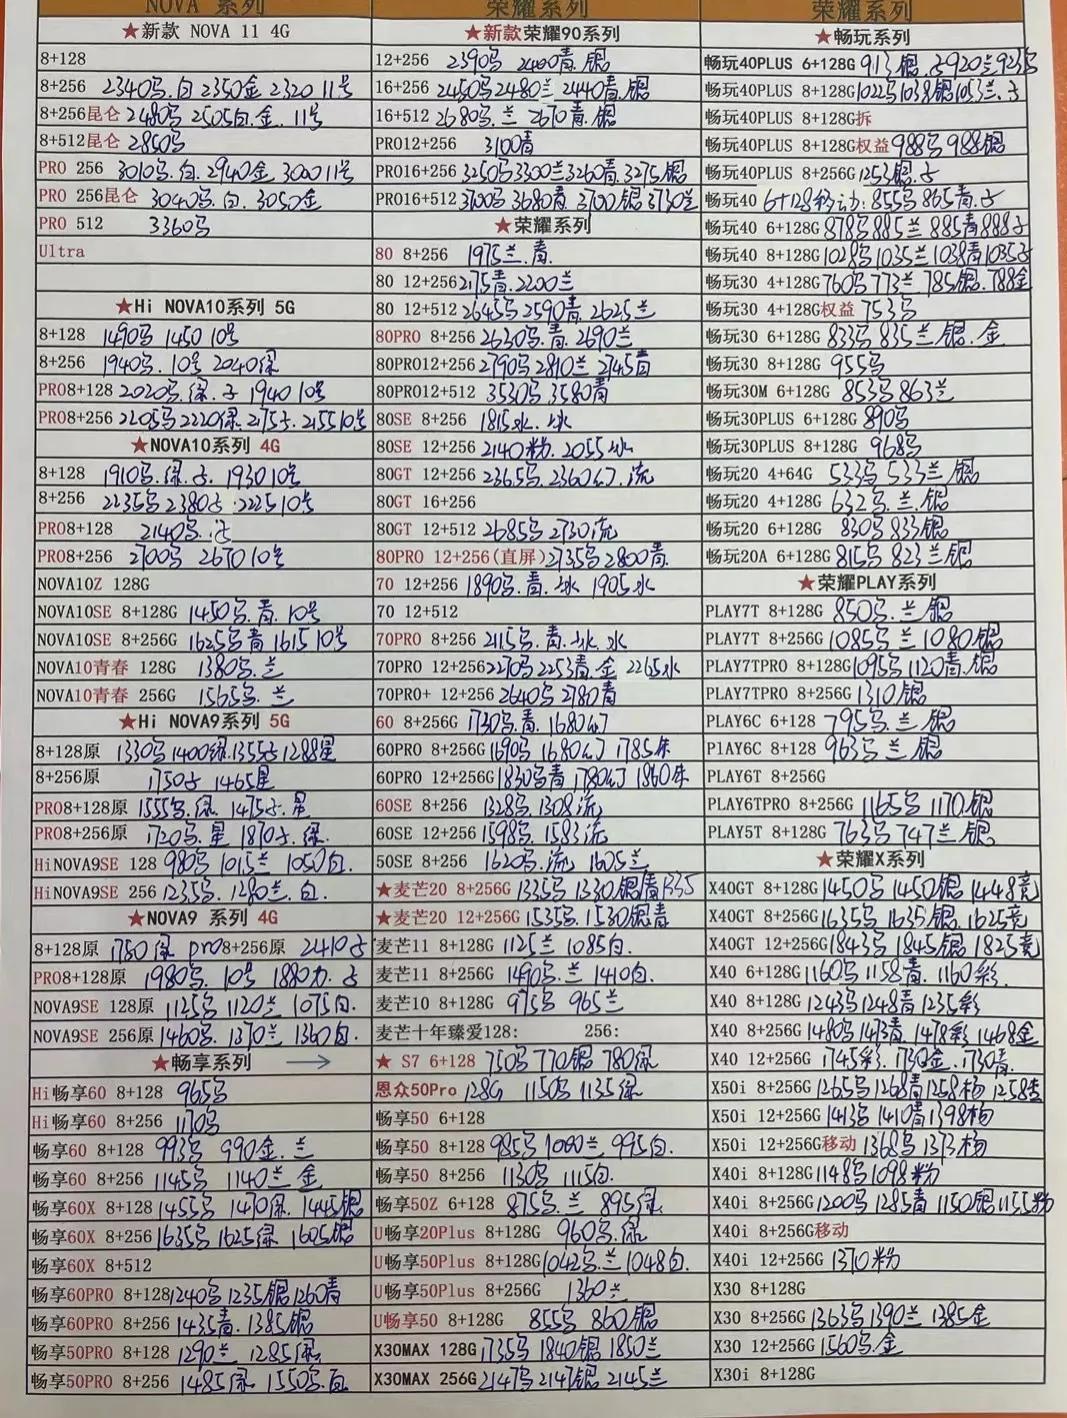 NOVA 系列
★新款 NOVA 11 4G
8+128
8+256 2340乌.白 2350金 2320 11号
8+256昆仑 2480乌 2505白.金. 11号
8+512昆仑 2850乌
PRO 256 3010乌.白. 2940金 3000 11号
PRO 256昆仑 3040乌.白. 3050金
PRO 512 3360乌
Ultra
★Hi NOVA10系列 5G
8+128 1490乌 1450 10号
8+256 1940乌. 10号 2040绿
PRO8+128 2020乌.绿.子 1940 10号
PRO8+256 2205乌2220绿.2175子.2155 10号
★NOVA10系列 4G
8+128 1910乌.绿.子. 1930 10号
8+256 2235乌2380子.2225 10号
PRO8+128 2140乌.
PRO8+256 2700乌 2670 10号
NOVA10Z 128G
NOVA10SE 8+128G 1450乌.青. 10号
NOVA10SE 8+256G 1625乌青 1615 10号
NOVA10青春 128G 1380乌.兰
NOVA10青春 256G 1565乌.兰
★Hi NOVA9系列 5G
8+128原 1330乌1400绿.1355子1288星
8+256原 1750子 1465星
PRO8+128原 1555乌.绿. 1475子.星
PRO8+256原 1720乌.星 1870子.绿.
HiNOVA9SE 128 980乌 1015兰 1050白.
HiNOVA9SE 256 1235乌. 1280兰.白.
★NOVA9 系列 4G
8+128原 1750绿 pro8+256原 2410子
PRO8+128原 1980乌. 10号 1880力.子
NOVA9SE 128原 1125乌 1120兰 1075白.
NOVA9SE 256原 1460乌. 1370兰 1360白.
★畅享系列 →
Hi畅享60 8+128 965乌
Hi畅享60 8+256 1170乌
畅享60 8+128 993乌 990金.兰
畅享60 8+256 1145乌 1140兰金
畅享60X 8+128 1455乌 1470绿. 1445银
畅享60X 8+256 1635乌 1625绿 1605银
畅享60X 8+512
畅享60PRO 8+128 1240乌1235银1260青
畅享60PRO 8+256 1435青. 1385银
畅享50PRO 8+128 1290兰 1285绿
畅享50PRO 8+256 1485绿 1550乌.白
荣耀系列
★新款荣耀90系列
12+256 2390乌 2400青.银
16+256 2450乌2480兰 2440青.银
16+512 2680乌.兰 2670青.银
PRO12+256 3100青
PRO16+256 3250乌3300兰3260青.3275银
PRO16+512 3700乌 3680青 3700银 3730兰
★荣耀系列
80 8+256 1975兰.青.
80 12+256 2175青.2200兰
80 12+512 2645乌2590青.2625兰
80PRO 8+256 2630乌.青. 2690兰
80PRO12+256 2790乌2810兰 2745青
80PRO12+512 3530乌3580青
80SE 8+256 1815水.冰
80SE 12+256 2140粉.2055冰
80GT 12+256 2365乌.2360幻.流
80GT 16+256
80GT 12+512 2685乌2730流
80PRO 12+256(直屏)2735乌2800青.
70 12+256 1890乌.青.冰 1905水
70 12+512
70PRO 8+256 2115乌.青.冰.水
70PRO 12+256 2270乌2253青.金 2265水
70PRO+ 12+256 2640乌2780青
60 8+256G 1730乌.青. 1680幻
60PRO 8+256G 1690乌 1680幻 1785朱
60PRO 12+256G 1830乌青 1780幻 1860朱
60SE 8+256 1328乌.1308流
60SE 12+256 1598乌.1583流
50SE 8+256 1620乌.流 1605兰
★麦芒20 8+256G 1335乌 1330银青1335
★麦芒20 12+256G 1535乌. 1530银青
麦芒11 8+128G 1125兰 1085白.
麦芒11 8+256G 1490乌.兰 1410白.
麦芒10 8+128G 975乌 965兰
麦芒十年臻爱128: 256:
★ S7 6+128 750乌 770银 780绿
恩众50Pro 128G 1150乌 1135绿
畅享50 6+128
畅享50 8+128 985乌 1000兰 995白.
畅享50 8+256 1130乌 1115白.
畅享50Z 6+128 875乌.兰 895绿
U畅享20Plus 8+128G 960乌.绿
U畅享50Plus 8+128G 1042乌.兰 1048白.
U畅享50Plus 8+256G 1360兰
U畅享50 8+128G 855乌 860银
X30MAX 128G 1735乌 1840银 1850兰
X30MAX 256G 2147乌 2147银 2145兰
荣耀系列
★畅玩系列
畅玩40PLUS 6+128G 913银.子920兰923乌
畅玩40PLUS 8+128G 1022乌1038银1053兰.子
畅玩40PLUS 8+128G拆
畅玩40PLUS 8+128G权益 988乌 988银
畅玩40PLUS 8+256G 1253银.子
畅玩40 6+128移动: 855乌 865青.子
畅玩40 6+128G 878乌885兰 885青888子
畅玩40 8+128G 1028乌1035兰1038青1035子
畅玩30 4+128G 760乌 773兰 785银.788金
畅玩30 4+128G权益 753乌
畅玩30 6+128G 833乌 835兰.银.金
畅玩30 8+128G 955乌
畅玩30M 6+128G 853乌 863兰
畅玩30PLUS 6+128G 890乌
畅玩30PLUS 8+128G 968乌
畅玩20 4+64G 533乌 533兰.银
畅玩20 4+128G 632乌.兰.银
畅玩20 6+128G 830乌 833银
畅玩20A 6+128G 815乌 823兰银
★荣耀PLAY系列
PLAY7T 8+128G 850乌.兰.银
PLAY7T 8+256G 1085乌.兰 1080银
PLAY7TPRO 8+128G 1095乌1120青.银
PLAY7TPRO 8+256G 1310银
PLAY6C 6+128 795乌.兰.银
PlAY6C 8+128 963乌.兰.银
PLAY6T 8+256G
PLAY6TPRO 8+256G 1165乌 1170.银
PLAY5T 8+128G 763乌 747兰.银
★荣耀X系列
X40GT 8+128G 1450乌 1450银 1448竞
X40GT 8+256G 1635乌 1635银.1625竞
X40GT 12+256G 1843乌 1845银 1825竞
X40 6+128G 1160乌 1158青. 1160彩.
X40 8+128G 1243乌1248青1235彩
X40 8+256G 1480乌1473青. 1478彩 1468金
X40 12+256G 1745彩. 1730金. 1730青.
X50i 8+256G 1265乌1268青1258杨 1258杏
X50i 12+256G 1413乌 1410青1398杨
X50i 12+256G移动 1368乌 1373杨
X40i 8+128G 1148乌1098粉
X40i 8+256G 1200乌1285青 1150银1155粉
X40i 8+256G移动
X40i 12+256G 1370粉
X30 8+128G
X30 8+256G 1363乌1390兰 1385金
X30 12+256G 1560乌.金
X30i 8+128G